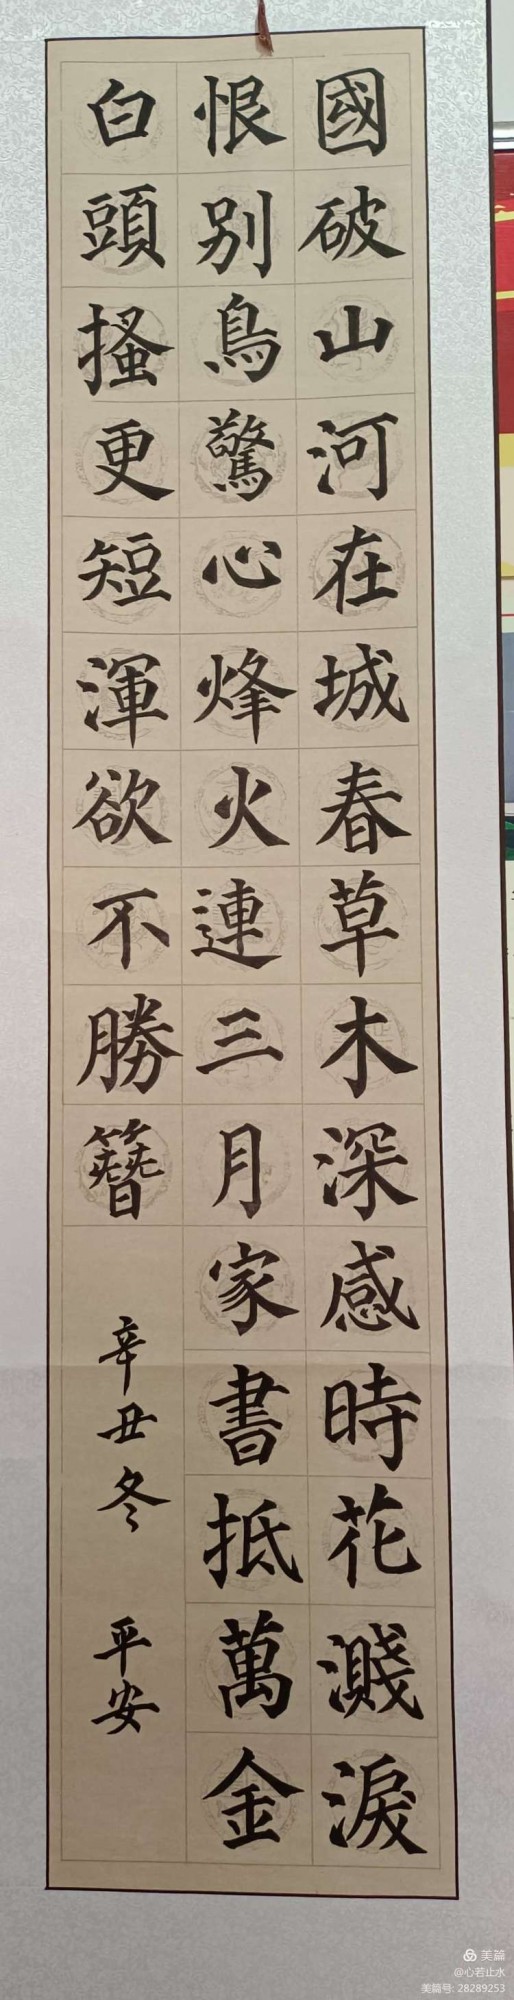 國破山河在城春草木深感時花濺淚
恨别鳥驚心烽火連三月家書抵萬金
白頭搔更短渾欲不勝簪
辛丑冬 平安
美篇
@心若止水
美篇号: 28289253